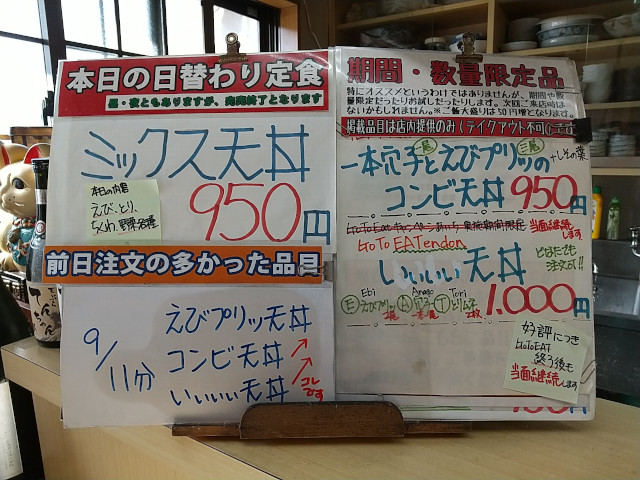 本日の日替わり定食
昼・夜ともありますが、完売終了となります
ミックス天丼
本日の内容
えび、とり、
ちくわ、野菜各種
950円
前日注文の多かった品目
9/11分
えびプリッツ天丼
コンビ天丼
いいいい天丼
コレです
期間・数量限定品
特にオススメというわけではありませんが、期間や数
量限定だったりお試しだったりします。次回ご来店時は
ないかもしれません。※ご飯大盛りは50円増となります。
掲載品目は店内提供のみ(テイクアウト不可)です
一本穴子とえびプリッツの
一尾
三尾
+しその葉
コンビ天丼 950円
GoToEatキャンペーン
当面継続
します
GoTo EATendon
いいいい天丼
どなたでも
注文可!!
Ebi
Anago
Tori
E えびプリッツ 2尾 A 穴子 一尾 T とり 2枚
1.000円
好評につき
GoToEAT
終了後も
当面継続します
てんちゃん